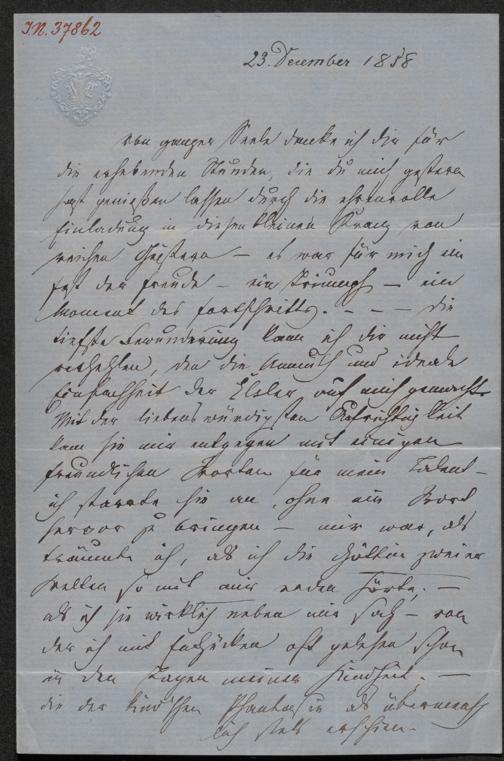 I.N. 37862
23. December 1858
von ganzer Seele danke ich dir für
die erhebenden Stunden, die du mich gestern
hast genießen lassen durch die ehrenvolle
Einladung in diesen kleinen Kranz von
reichen Geistern – es war für mich ein
Fest der Freude – ein Triumph – ein
Moment des Fortschritts. – – – Die
tiefste Bewunderung kann ich dir nicht
verhehlen, den die Anmuth und ideale
Einfachheit der Elsler auf mich gemacht.
Mit der liebenswürdigsten Aufrichtigkeit
kam sie mir entgegen mit einigen
freundlichen Worten für mein Talent –
ich starrte sie an, ohne ein Wort
hervor zu bringen – mir war, als
träumte ich, als ich die Göttin zweier
Welten so mit mir reden hörte. –
als ich sie wirklich neben mir sah – von
der ich mit Entzücken oft gelesen schon
in den Tagen meiner Kindheit. –
die der Phantasie als übermensch
lich stets erschien. –